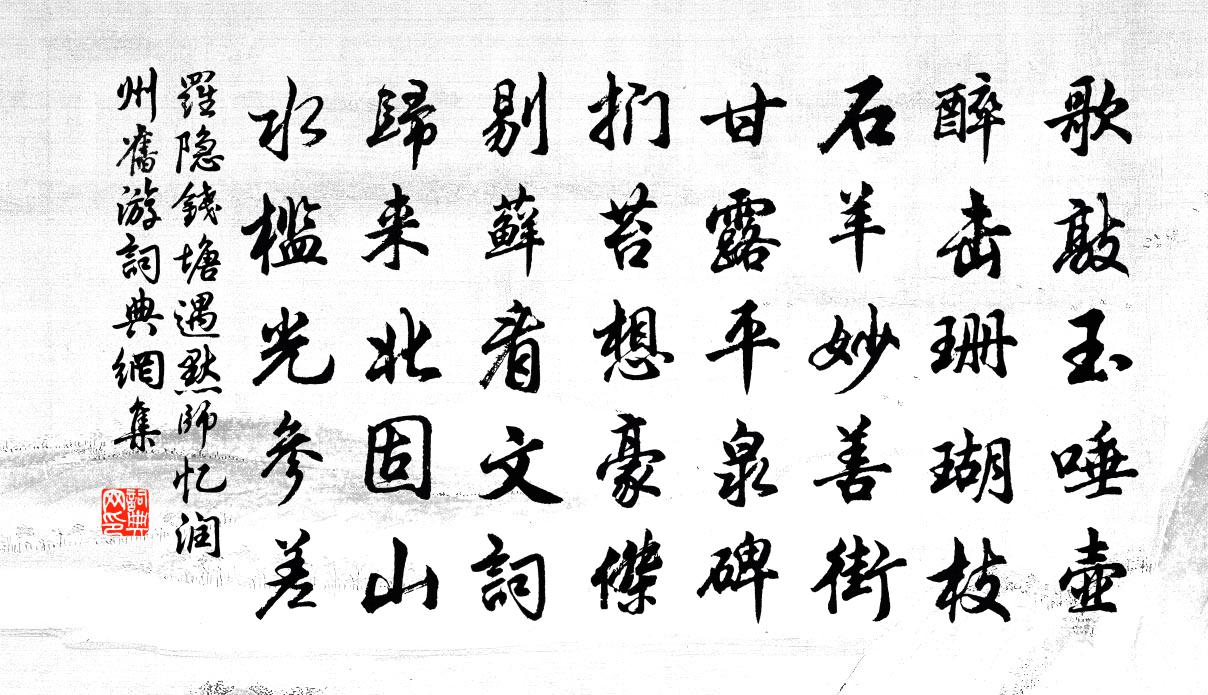 歌敲玉唾壺
醉击珊瑚枝
石羊妙善街
甘露平泉碑
捫苔想豪傑
剔蘚看文詞
歸来北固山
水槛光參差
羅隐錢塘遇默師忆润
州舊游詞典網集
詞典网印